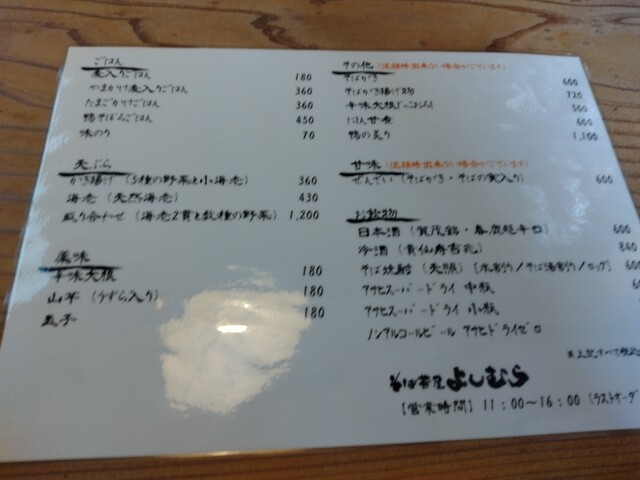 ごはん
麦入りごはん 180
やまかけ麦入りごはん 360
たまごかけごはん 360
鴨そぼろごはん 450
味のり 70
天ぷら
かき揚げ (5種の野菜と小海老) 360
海老 (天然海老) 430
盛り合わせ (海老2貫と数種の野菜) 1,200
薬味
辛味大根 180
山芋 (うずら入り) 180
玉子 180
その他 (混雑時出来ない場合がございます)
そばがき 600
そばがき揚げ物 720
辛味大根 500
にしん甘煮 600
鴨の炙り 1,100
甘味 (混雑時出来ない場合がございます)
ぜんざい (そばがき・そばの実入り) 600
お飲物
日本酒 (賀茂錦・春鹿超辛口) 600
冷酒 840
そば焼酎 (天照) [水割り/そば湯割り/ロック] 60
アサヒスーパードライ 中瓶
アサヒスーパードライ 小瓶
ノンアルコールビール アサヒドライゼロ
※上記すべて税込
そば茶屋 よしむら
【営業時間】 11:00~16:00 (ラストオーダ